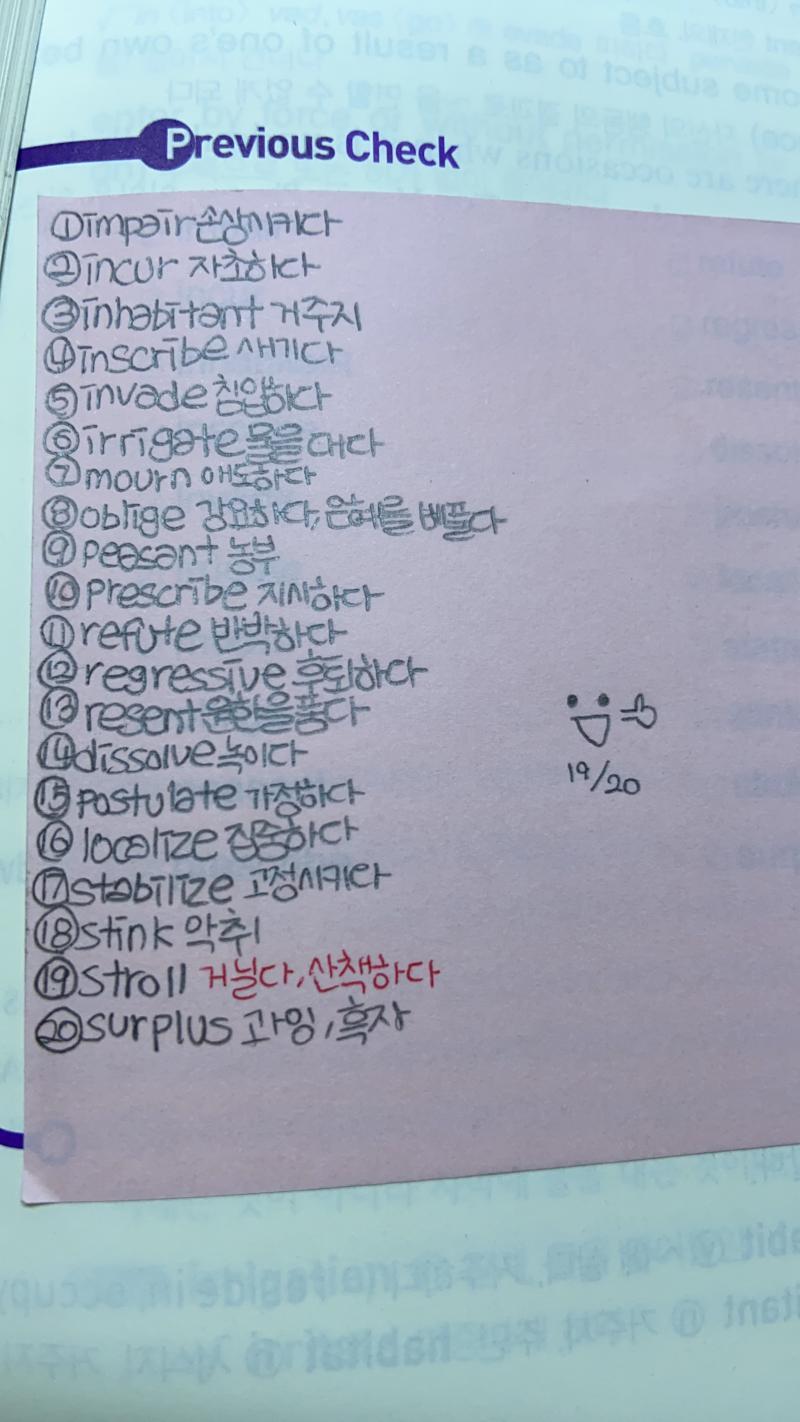 ome subject to as a result of one's own be
Previous Check
①impair 손상시키다
②incur 자초하다
③inhabitant 거주지
④inscribe 새기다
⑤invade 침입하다
⑥irrigate 물을 대다
⑦mourn 애도하다
⑧oblige 강요하다, 은혜를 베풀다
⑨peasant 농부
⑩prescribe 지시하다
⑪refute 반박하다
⑫regressive 후퇴하다
⑬resent 원한을 품다
⑭dissolve 녹이다
⑮postulate 가정하다
⑯localize 집중하다
⑰stabilize 고정시키다
⑱stink 악취
⑲stroll 거닐다, 산책하다
⑳surplus 과잉, 흑자
19/20